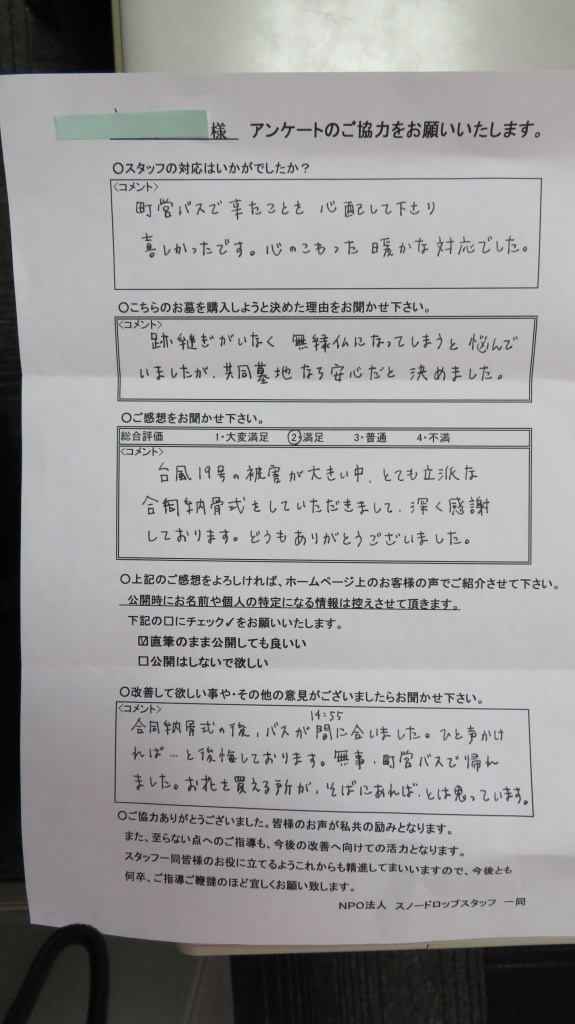 様 アンケートのご協力をお願いいたします。
〇スタッフの対応はいかがでしたか？
<コメント>
町営バスで来たことを 心配して下さり
喜しかったです。心のこもった 暖かな対応でした。
〇こちらのお墓を購入しようと決めた理由をお聞かせ下さい。
<コメント>
跡継ぎがいなく 無縁仏になってしまうと 悩んで
いましたが、共同墓地なら安心だと 決めました。
〇ご感想をお聞かせ下さい。
総合評価 1・大変満足 2・満足 3・普通 4・不満
<コメント>
台風19号の被害が大きい中、とても立派な
合同納骨式をしていただきまして、深く感謝
しております。どうもありがとうございました。
〇上記のご感想をよろしければ、ホームページ上のお客様の声でご紹介させて下さい。
公開時にお名前や個人の特定になる情報は控えさせて頂きます。
下記の□にチェック✓をお願いいたします。
☑直筆のまま公開しても良いい
□公開はしないで欲しい
〇改善して欲しい事や・その他の意見がございましたらお聞かせ下さい。
<コメント>
14:55
合同納骨式の後、バスが間に合いました。ひと声かけ
れば…と後悔しております。無事・町営バスで帰れ
ました。お花を買える所が、そばにあれば、とは思っています。
〇ご協力ありがとうございました。皆様のお声が私共の励みとなります。
また、至らない点へのご指導も、今後の改善へ向けての活力となります。
スタッフ一同皆様のお役に立てるようこれからも精進してまいいますので、今後とも
何卒、ご指導ご鞭撻のほど宜しくお願い致します。
NPO法人 スノードロップスタッフ 一同